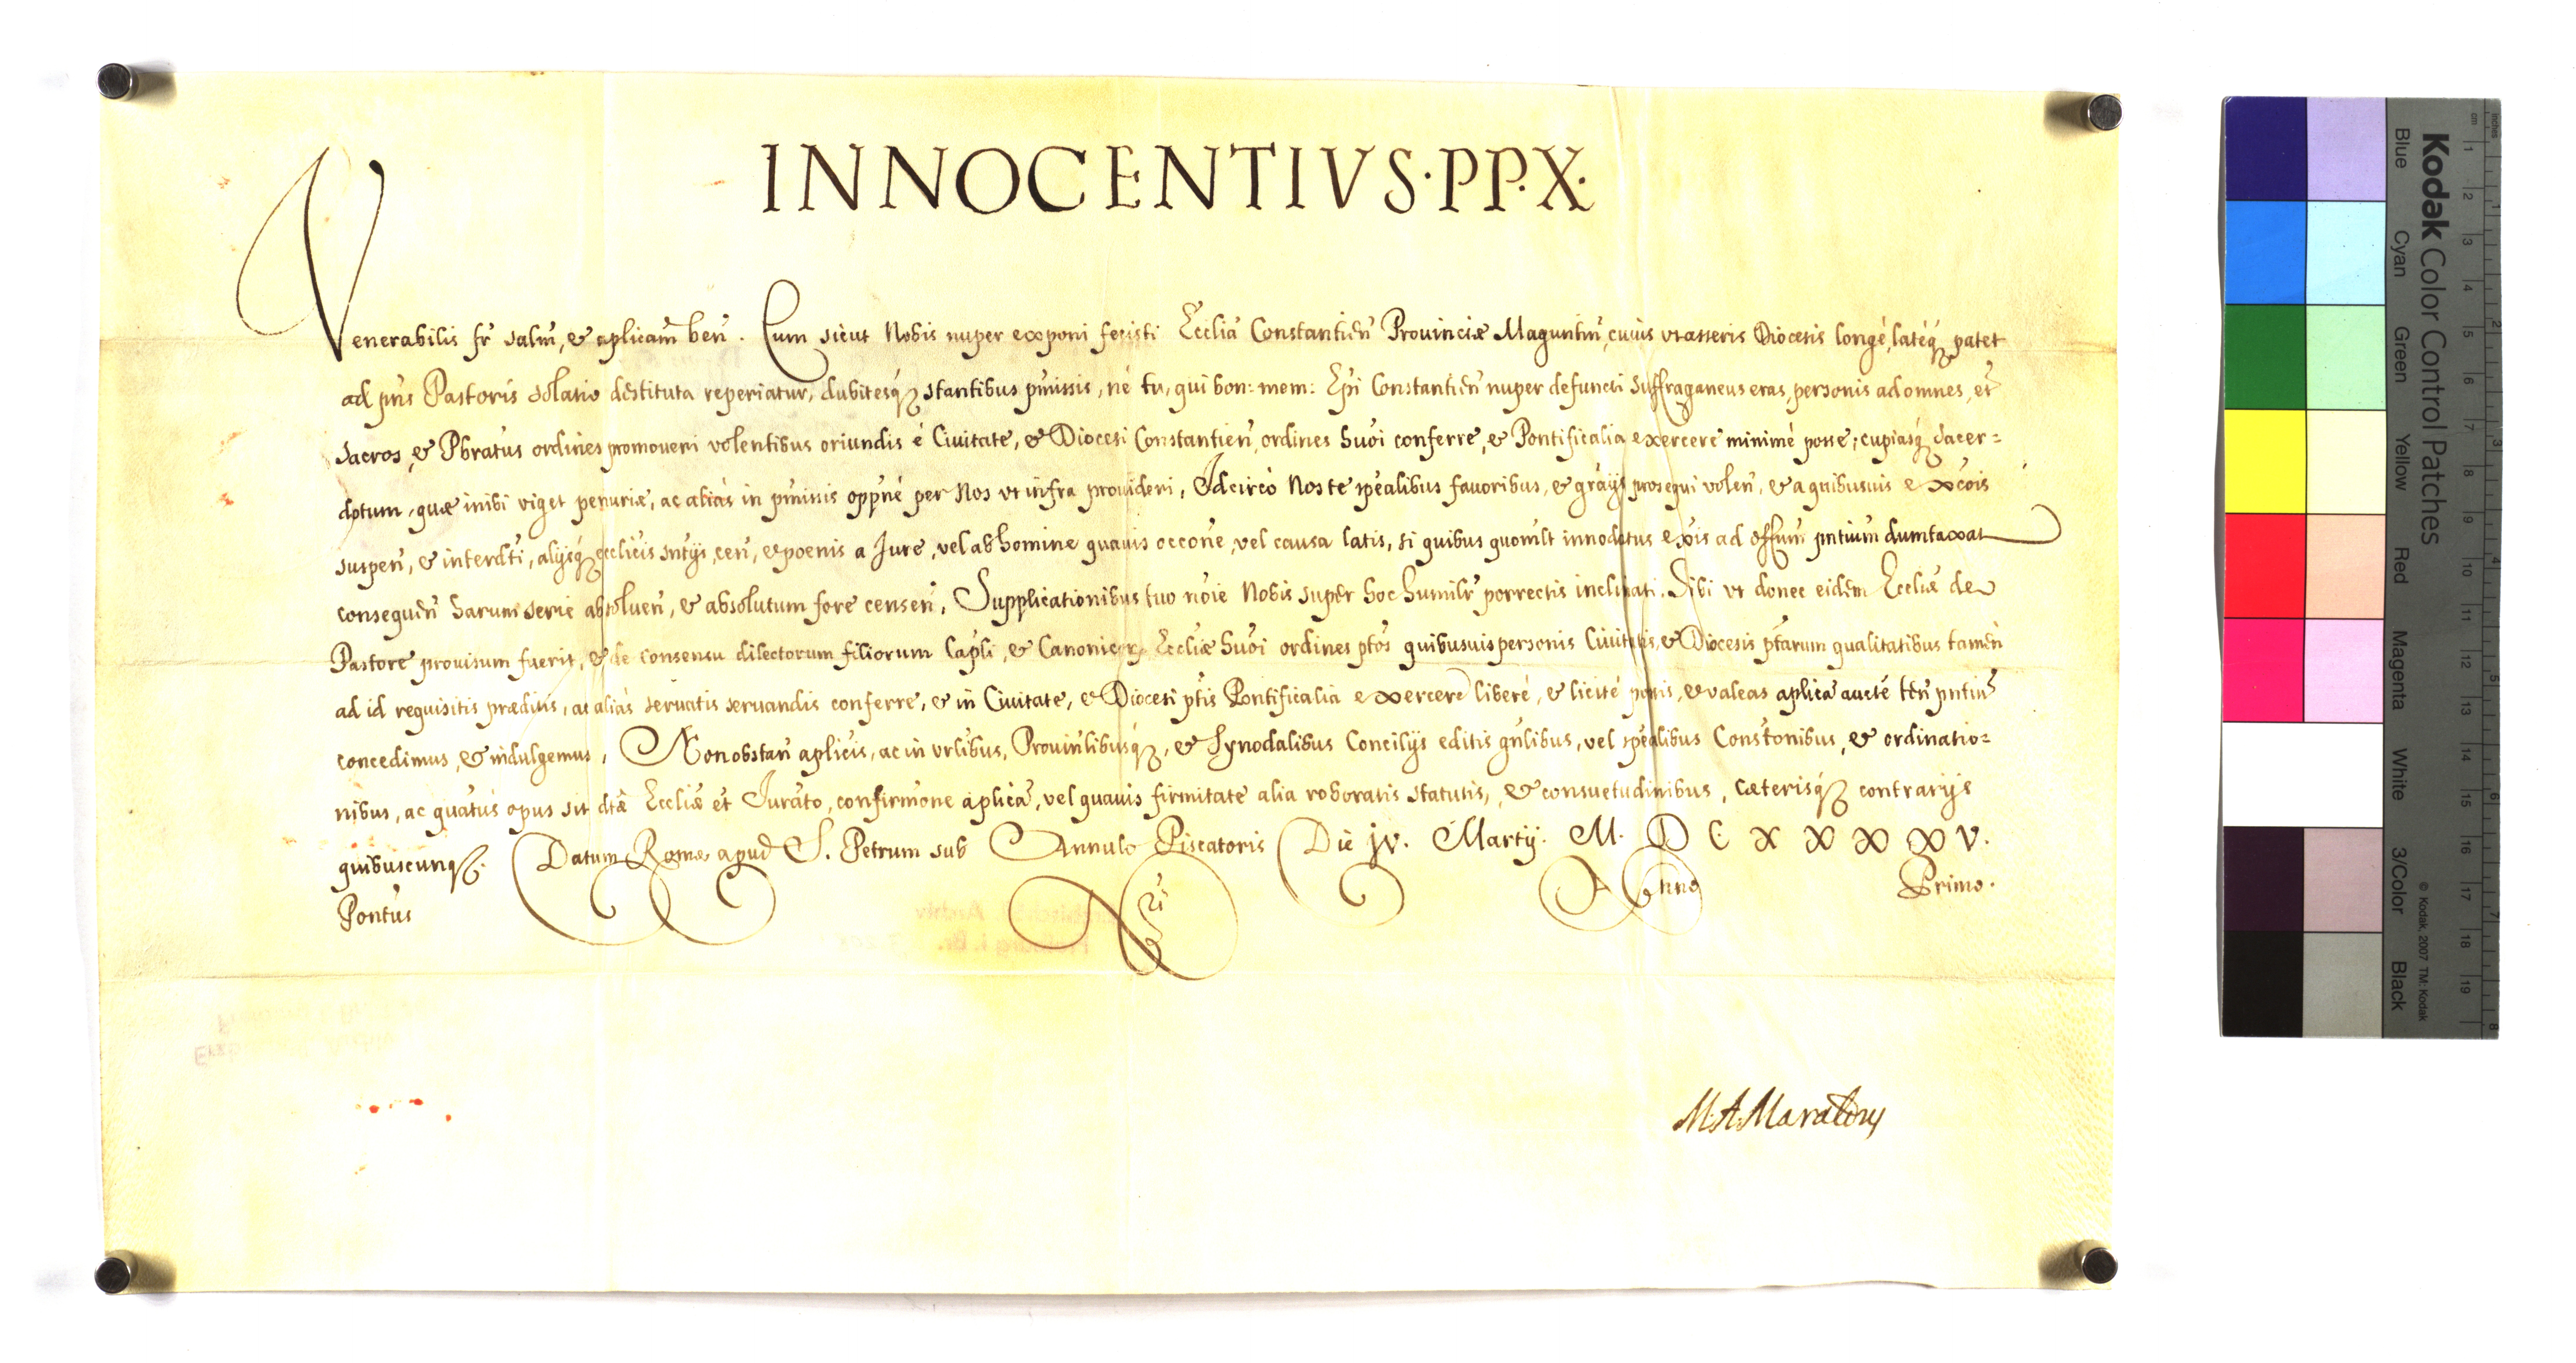 INNOCENTIVS·PP·X·
Venerabilis fr̃ salm̃, & aplicam̃ ben̄. Cum sicut Nobis nuper exponi fecisti Ecclia Constantien̄ Prouinciæ Maguntin̄, cuius vt asseris Diocesis longè, latèq; patet
ad pñs Pastoris solatio destituta reperiatur, dubitesq; stantibus p̃missis, ne tu, qui bon: mem: Epĩ Constantien̄ nuper defuncti suffraganeus eras, personis ad omnes, et
sacros, & Pbratus ordines promoueri volentibus oriundis è Ciuitate, & Diocesi Constantien̄, ordines hmõi conferre, & Pontificalia exercere minimè posse; cupiasq; sacer=
dotum, quæ inibi viget penuriæ, ac aliàs in p̃missis opp̃nè per Nos vt infra prouideri, Idcircò Nos te sp̃ealibus fauoribus, & grãijs prosequi volen̄, & a quibusuis excõis
suspen̄, & interdti, alijsq; ecclicis sntijs, cen̄, & poenis a Iure, vel ab homine quauis occõne, vel causa latis, si quibus quomlt innodatus exis ad effum̄ pntium̄ dumtaxat
consequen̄ harum serie absoluen̄, & absolutum fore censen̄, Supplicationibus tuo nõie Nobis super hoc humilr̃ porrectis inclinati. Tibi vt donec eidem Eccliæ de
Pastore prouisum fuerit, & de consensu dilectorum filiorum Capli, & Canonicor; Eccliæ hmõi ordines ptõs quibusuis personis Ciuitatis, & Diocesis ptarum qualitatibus tamen
ad id requisitis præditis, ac aliàs seruatis seruandis conferre, & in Ciuitate, & Diocesi ptis Pontificalia exercere liberè, & licitè possis, & valeas aplicã auctẽ ten̄ pntiũ
concedimus, & indulgemus, Non obstan̄ aplicis, ac in vrlibus, Prouinlibusq;, & Synodalibus Concilijs editis gnlibus, vel sp̃ealibus Constõnibus, & ordinatio=
nibus, ac quatus opus sit dtæ Eccliæ et Iurãto, confirmõne aplicã, vel quauis firmitate alia roboratis statutis, & consuetudinibus, cæterisq; contrarijs
quibuscunq;. Datum Romæ apud S. Petrum sub Annulo Piscatoris Die jv. Martij. M. D C X X X X V.
Pontus Nri Anno Primo.
M. A. Maraldus
Kodak Color Control Patches
Blue Cyan Green Yellow Red Magenta White 3/Color Black
© Kodak, 2007 TM: Kodak
cm 1 2 3 4 5 6 7 8 9 10 11 12 13 14 15 16 17 18 19
inches 1 2 3 4 5 6 7 8